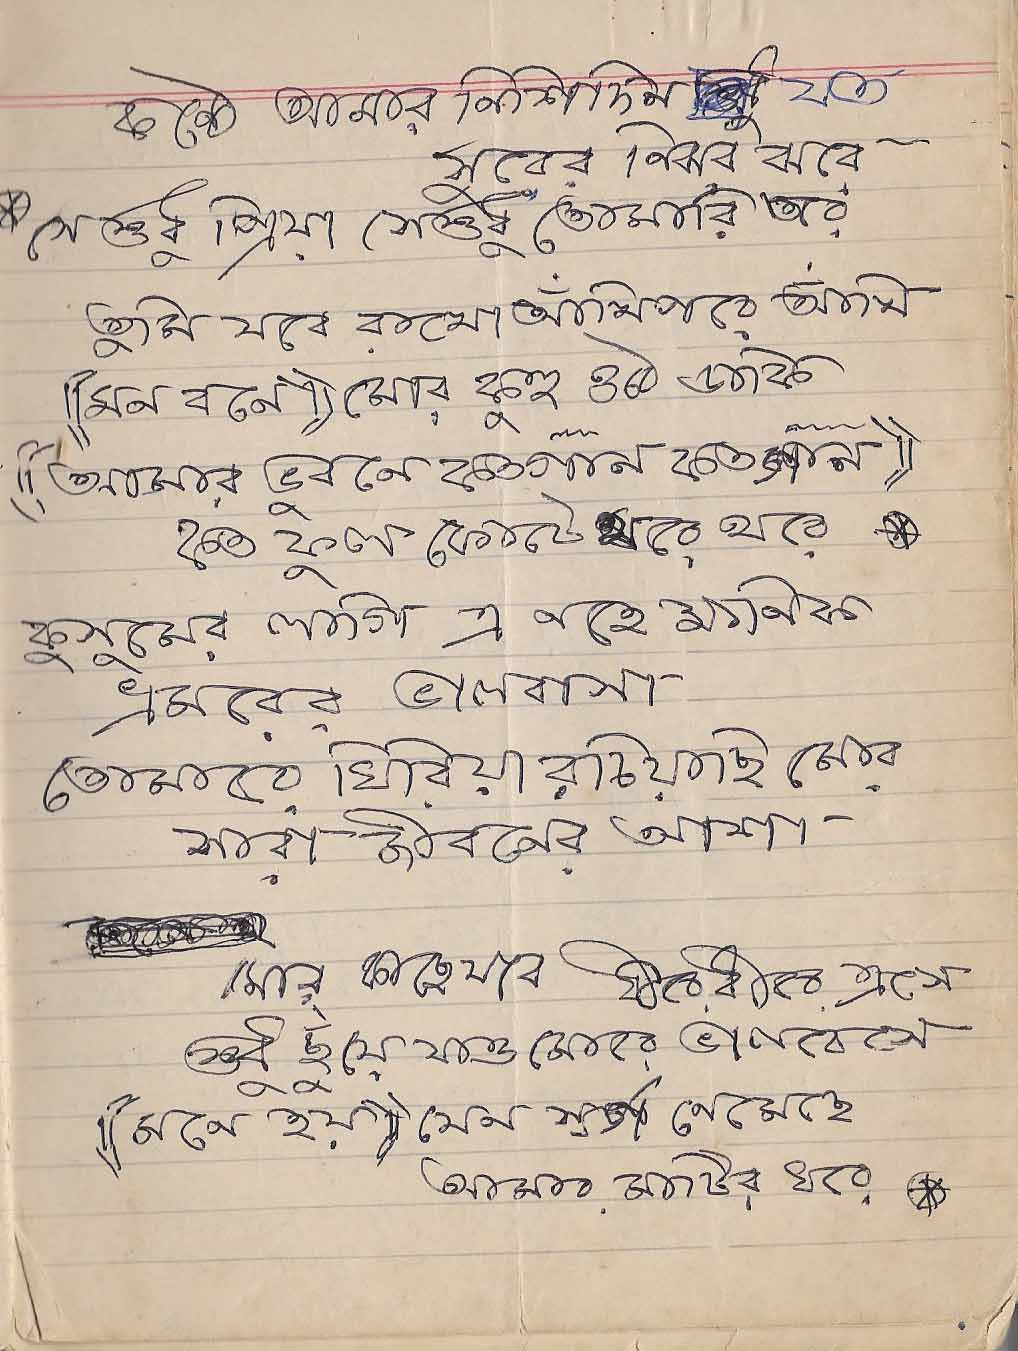 কন্ঠে আমার নিশিদিন যত
সুরের নিঝর ঝরে
সে শুধু প্রিয়া সে শুধু তোমারি তরে
তুমি যবে রাখো আঁখিপরে আঁখি
((মন বনে)) মোর কুহু ওঠে ডাকি
((আমার ভুবনে কতগান কতগান))
কত ফুল ফোটে থরে থরে
কুসুমের লাগি এ নহে মানিক
ভ্রমরের ভালবাসা
তোমারে ঘিরিয়া রচিয়াছি মোর
সারা জীবনের আশা
মোর কাছে যবে ধীরে ধীরে এসে
শুধু ছুঁয়ে যাও মোরে ভালবেসে
((মনে হয়)) যেন স্বর্গ নেমেছে
আমার মাটির ঘরে